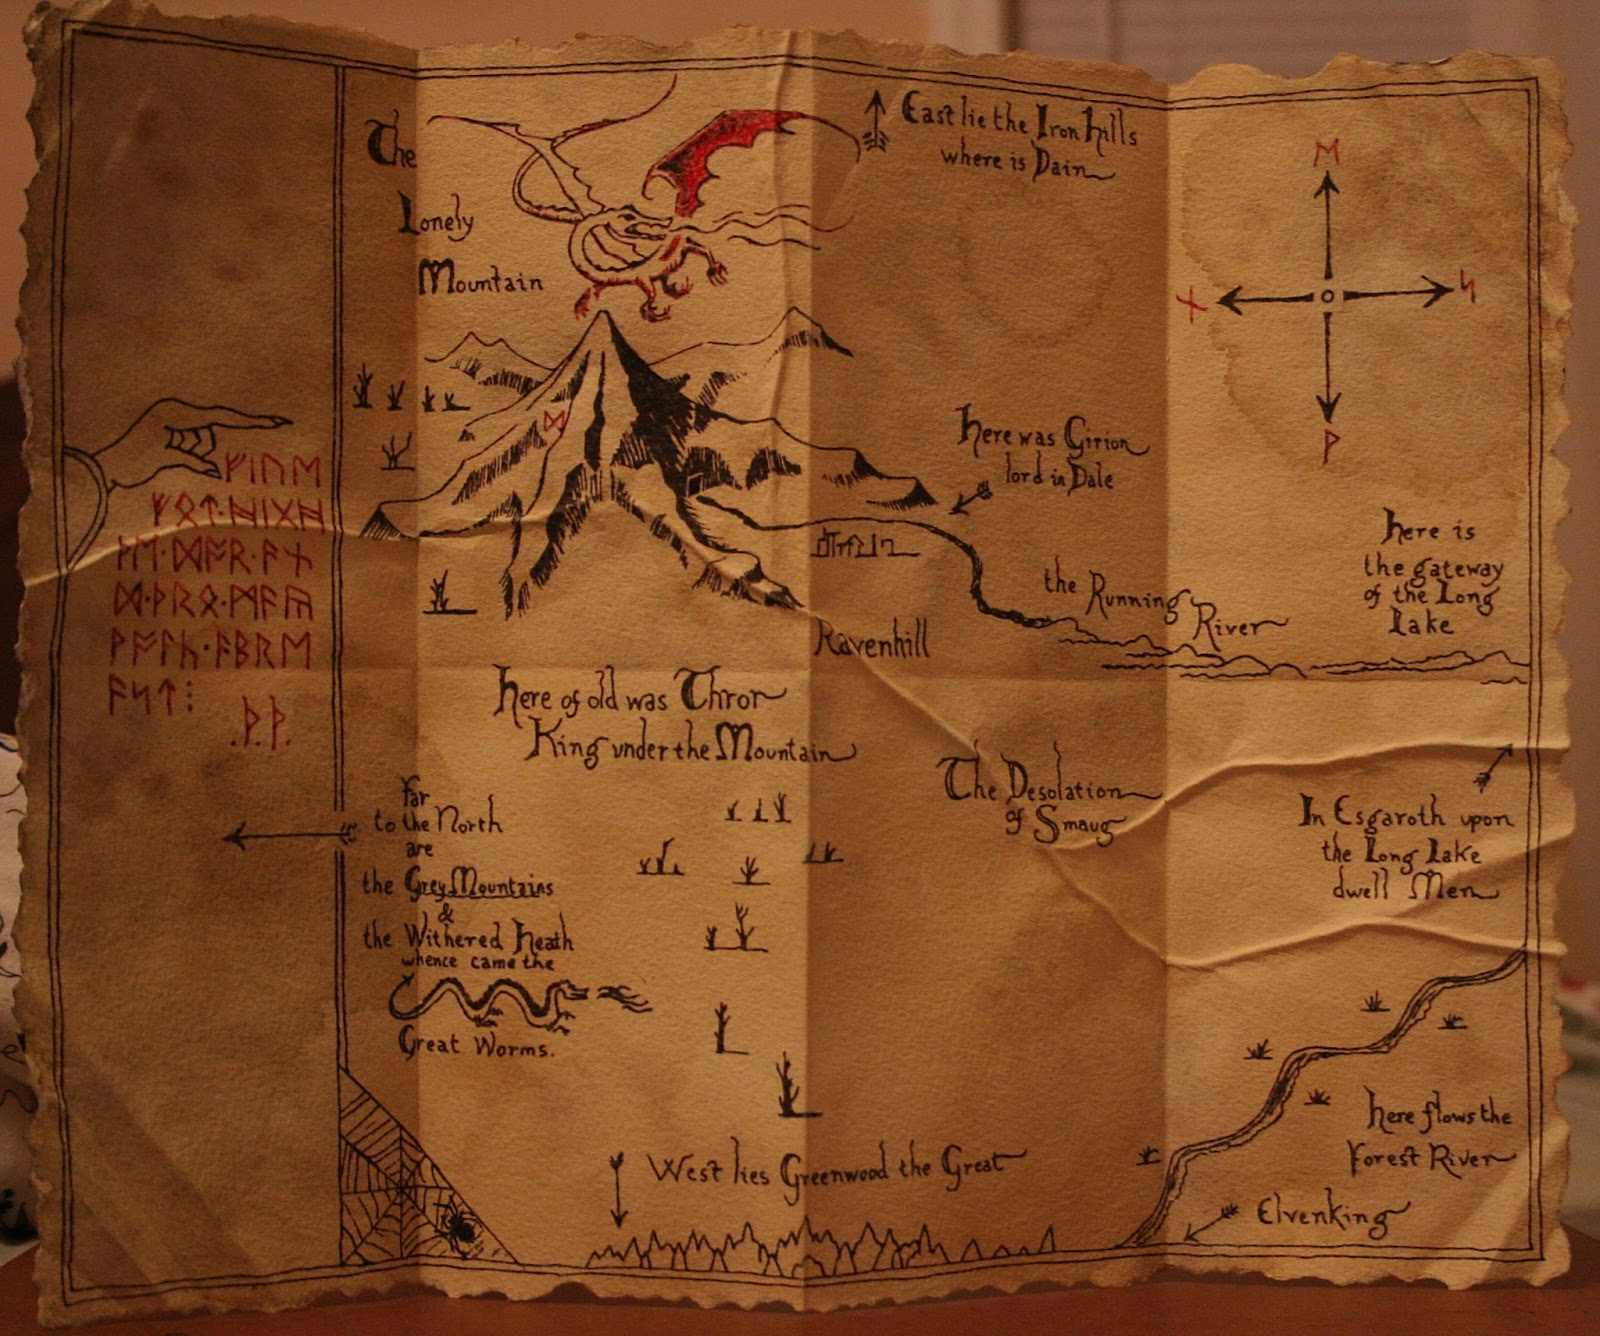 The
Lonely
Mountain
East lie the Iron Hills
where is Dain
ᛖ
ᚾ
ᛋ
ᚹ
ᛞ
ᚠᛁᚢᛖ
ᚠᛟᛏ·ᚻᛁᚷᚻ
ᚦᛖ·ᛞᚩᚱ·ᚪᚾ
ᛞ·ᚦᚱᛟ·ᛗᚪᚣ
ᚹᚪᛚᚳ·ᚪᛒᚱᛖ
ᚪᛋᛏ⋮
.ᚦ.ᚦ.
Here was Girion
lord in Dale
Here is
the gateway
of the Long
Lake
the Running
River
Ravenhill
Here of old was Thror
King under the Mountain
The Desolation
of Smaug
In Esgaroth upon
the Long Lake
dwell Men
Far
to the North
are
the Grey Mountains
&
the Withered Heath
whence came the
Great Worms.
West lies Greenwood the Great
Here flows the
Forest River
Elvenking